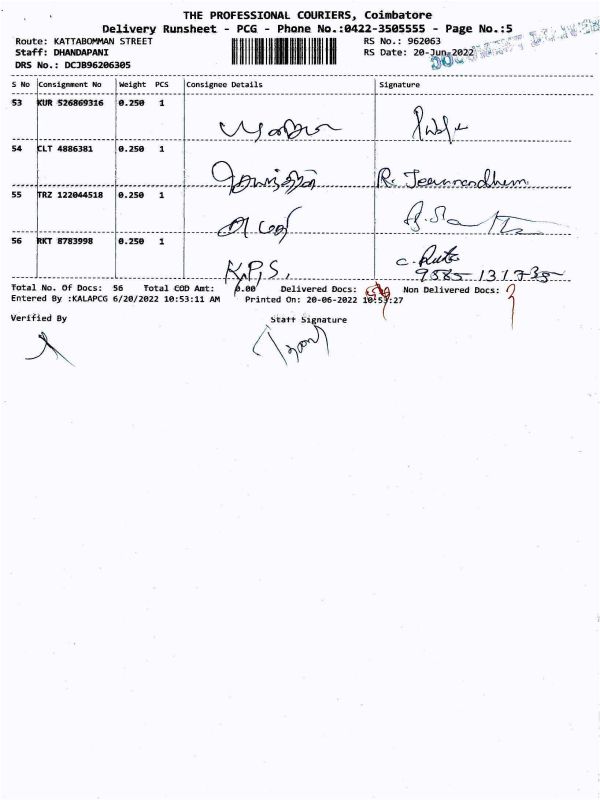 THE PROFESSIONAL COURIERS, Coimbatore
Delivery Runsheet - PCG - Phone No.:0422-3505555 - Page No.:5
Route: KATTABOMMAN STREET RS No.: 962063
Staff: DHANDAPANI RS Date: 20-Jun-2022
DRS No.: DCJB96206305
S No Consignment No Weight PCS Consignee Details Signature
53 KUR 526869316 0.250 1
54 CLT 4886381 0.250 1
55 TRZ 122044518 0.250 1
56 RKT 8783998 0.250 1 K.P.S.
Total No. Of Docs: 56 Total COD Amt: 0.00 Delivered Docs: Non Delivered Docs: 3
Entered By :KALAPCG 6/20/2022 10:53:11 AM Printed On: 20-06-2022 10:53:27
Verified By Staff Signature